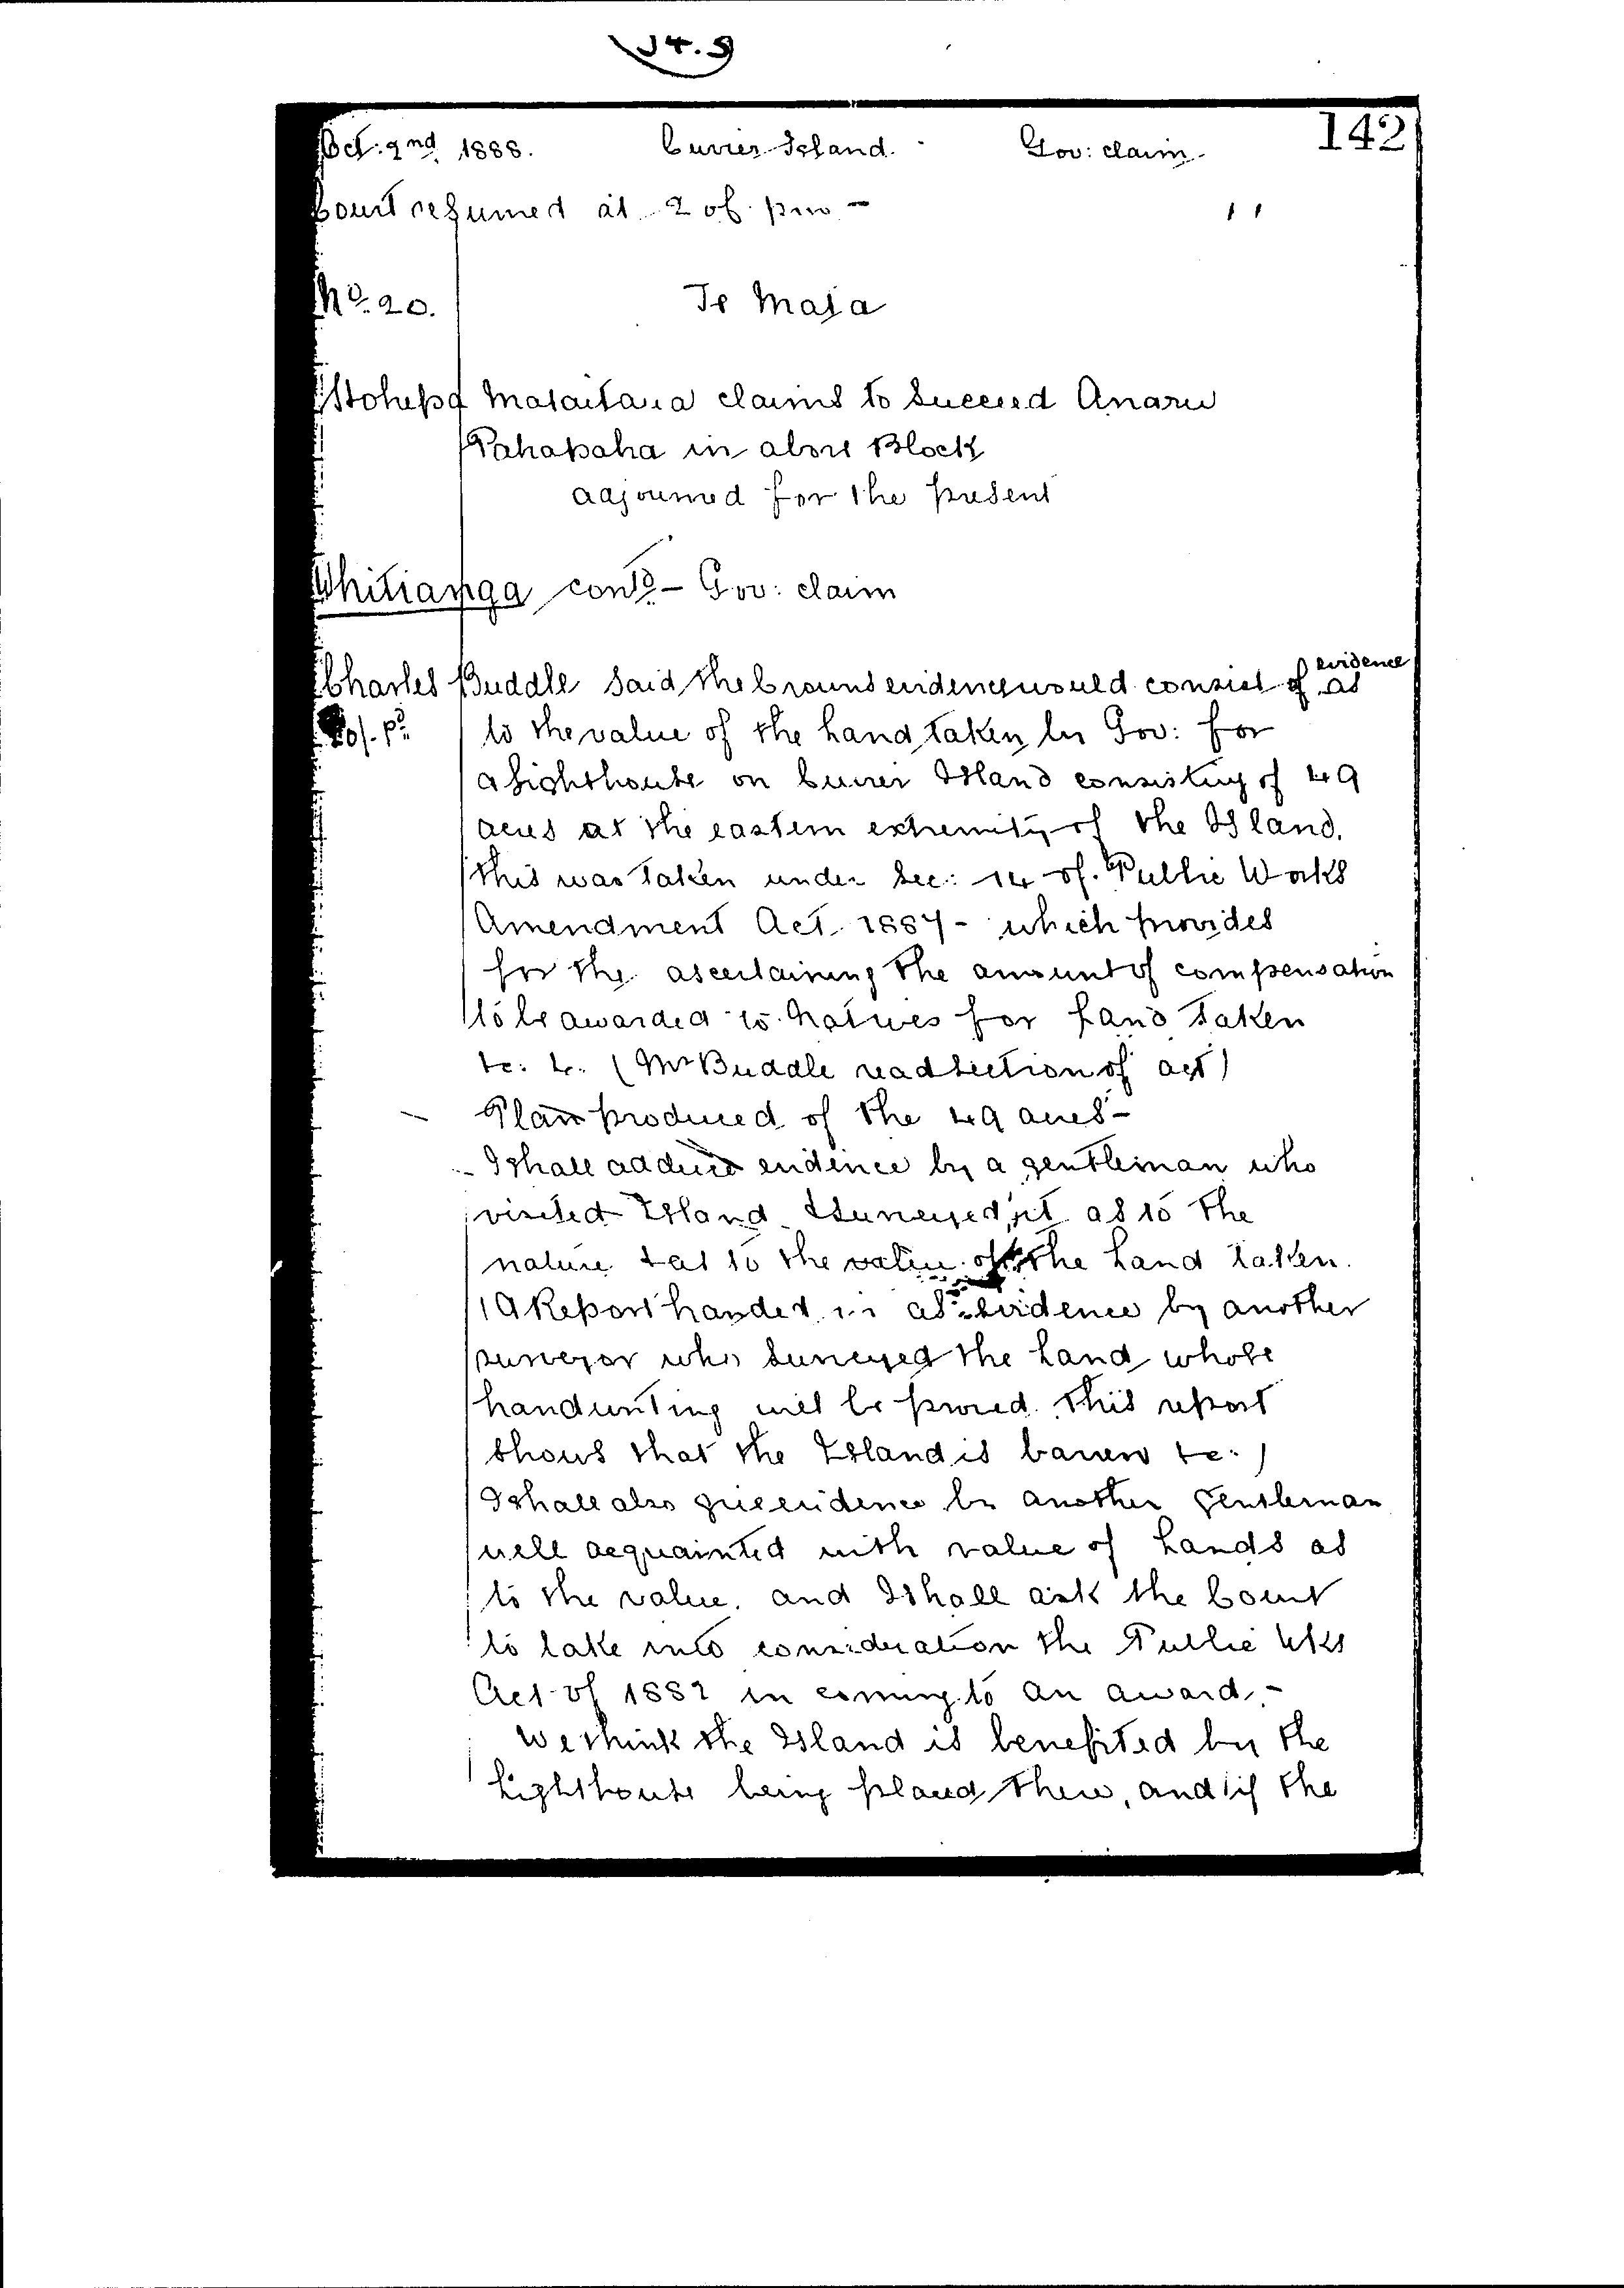 J4.9
142
Oct: 2nd 1888. Cuvier Island. Gov: claim.
Court resumed at 2 of. pm - " 
No. 20. Te Mata
Mataitaua claims to succeed Anaru
Pahapaha in above Block
adjourned for the present
Whitianga contd - Gov: claim
evidence
Charles Buddle said the Crowns evidence would consist of as
to the value of the Land taken by Gov: for
a Lighthouse on Cuvier Island consisting of 49
acres at the eastern extremity of the Island.
this was taken under Sec: 14 of. Public Works
Amendment Act. 1887 - which provides
for the ascertaining the amount of compensation
to be awarded to Natives for Land taken
&c: &c. (Mr Buddle read section of act)
Plan produced of the 49 acres -
I shall adduce evidence by a gentleman who
visited Island & surveyed it as to the
nature & as to the value of the Land taken.
(A Report handed in as evidence by another
surveyor who surveyed the Land whose
handwriting will be proved. this report
shows that the Island is barren &c:)
I shall also give evidence by another gentleman
well acquainted with value of Lands as
to the value. and I shall ask the Court
to take into consideration the Public Wks
Act of 1882 in coming to an award. -
We think the Island is benefited by the
Lighthouse being placed there, and if the